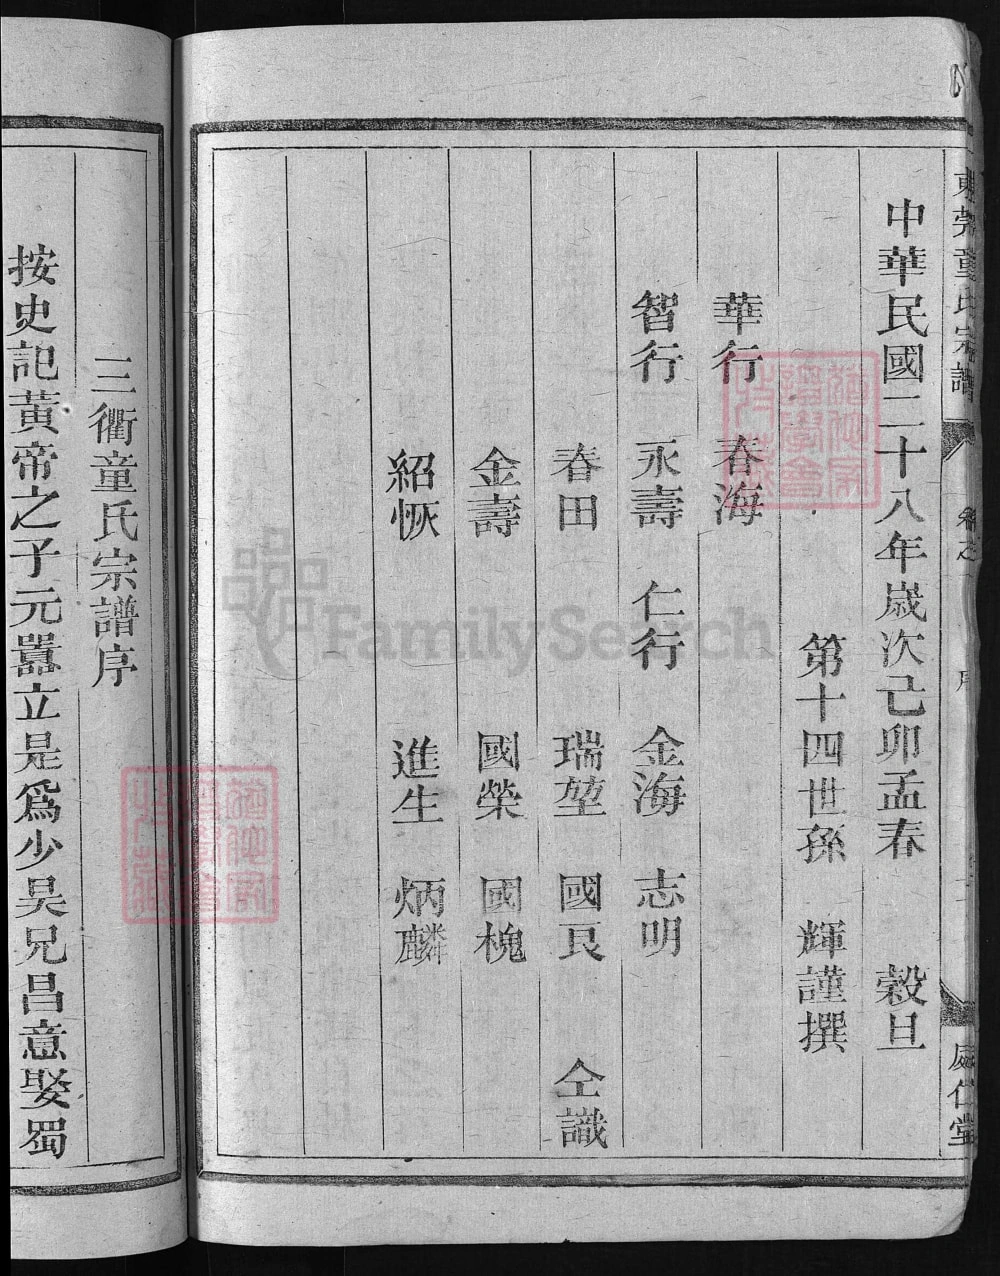 童氏宗譜
序
中華民國二十八年歲次己卯孟春 穀旦
第十四世孫 輝謹撰
華行 春海
智行 永壽 仁行 金海 志明
春田 瑞堃 國艮 仝識
金壽 國榮 國槐
紹恢 進生 炳麟
三衢童氏宗譜序
按史記黃帝之子元囂立是爲少昊兄昌意娶蜀
FamilySearch